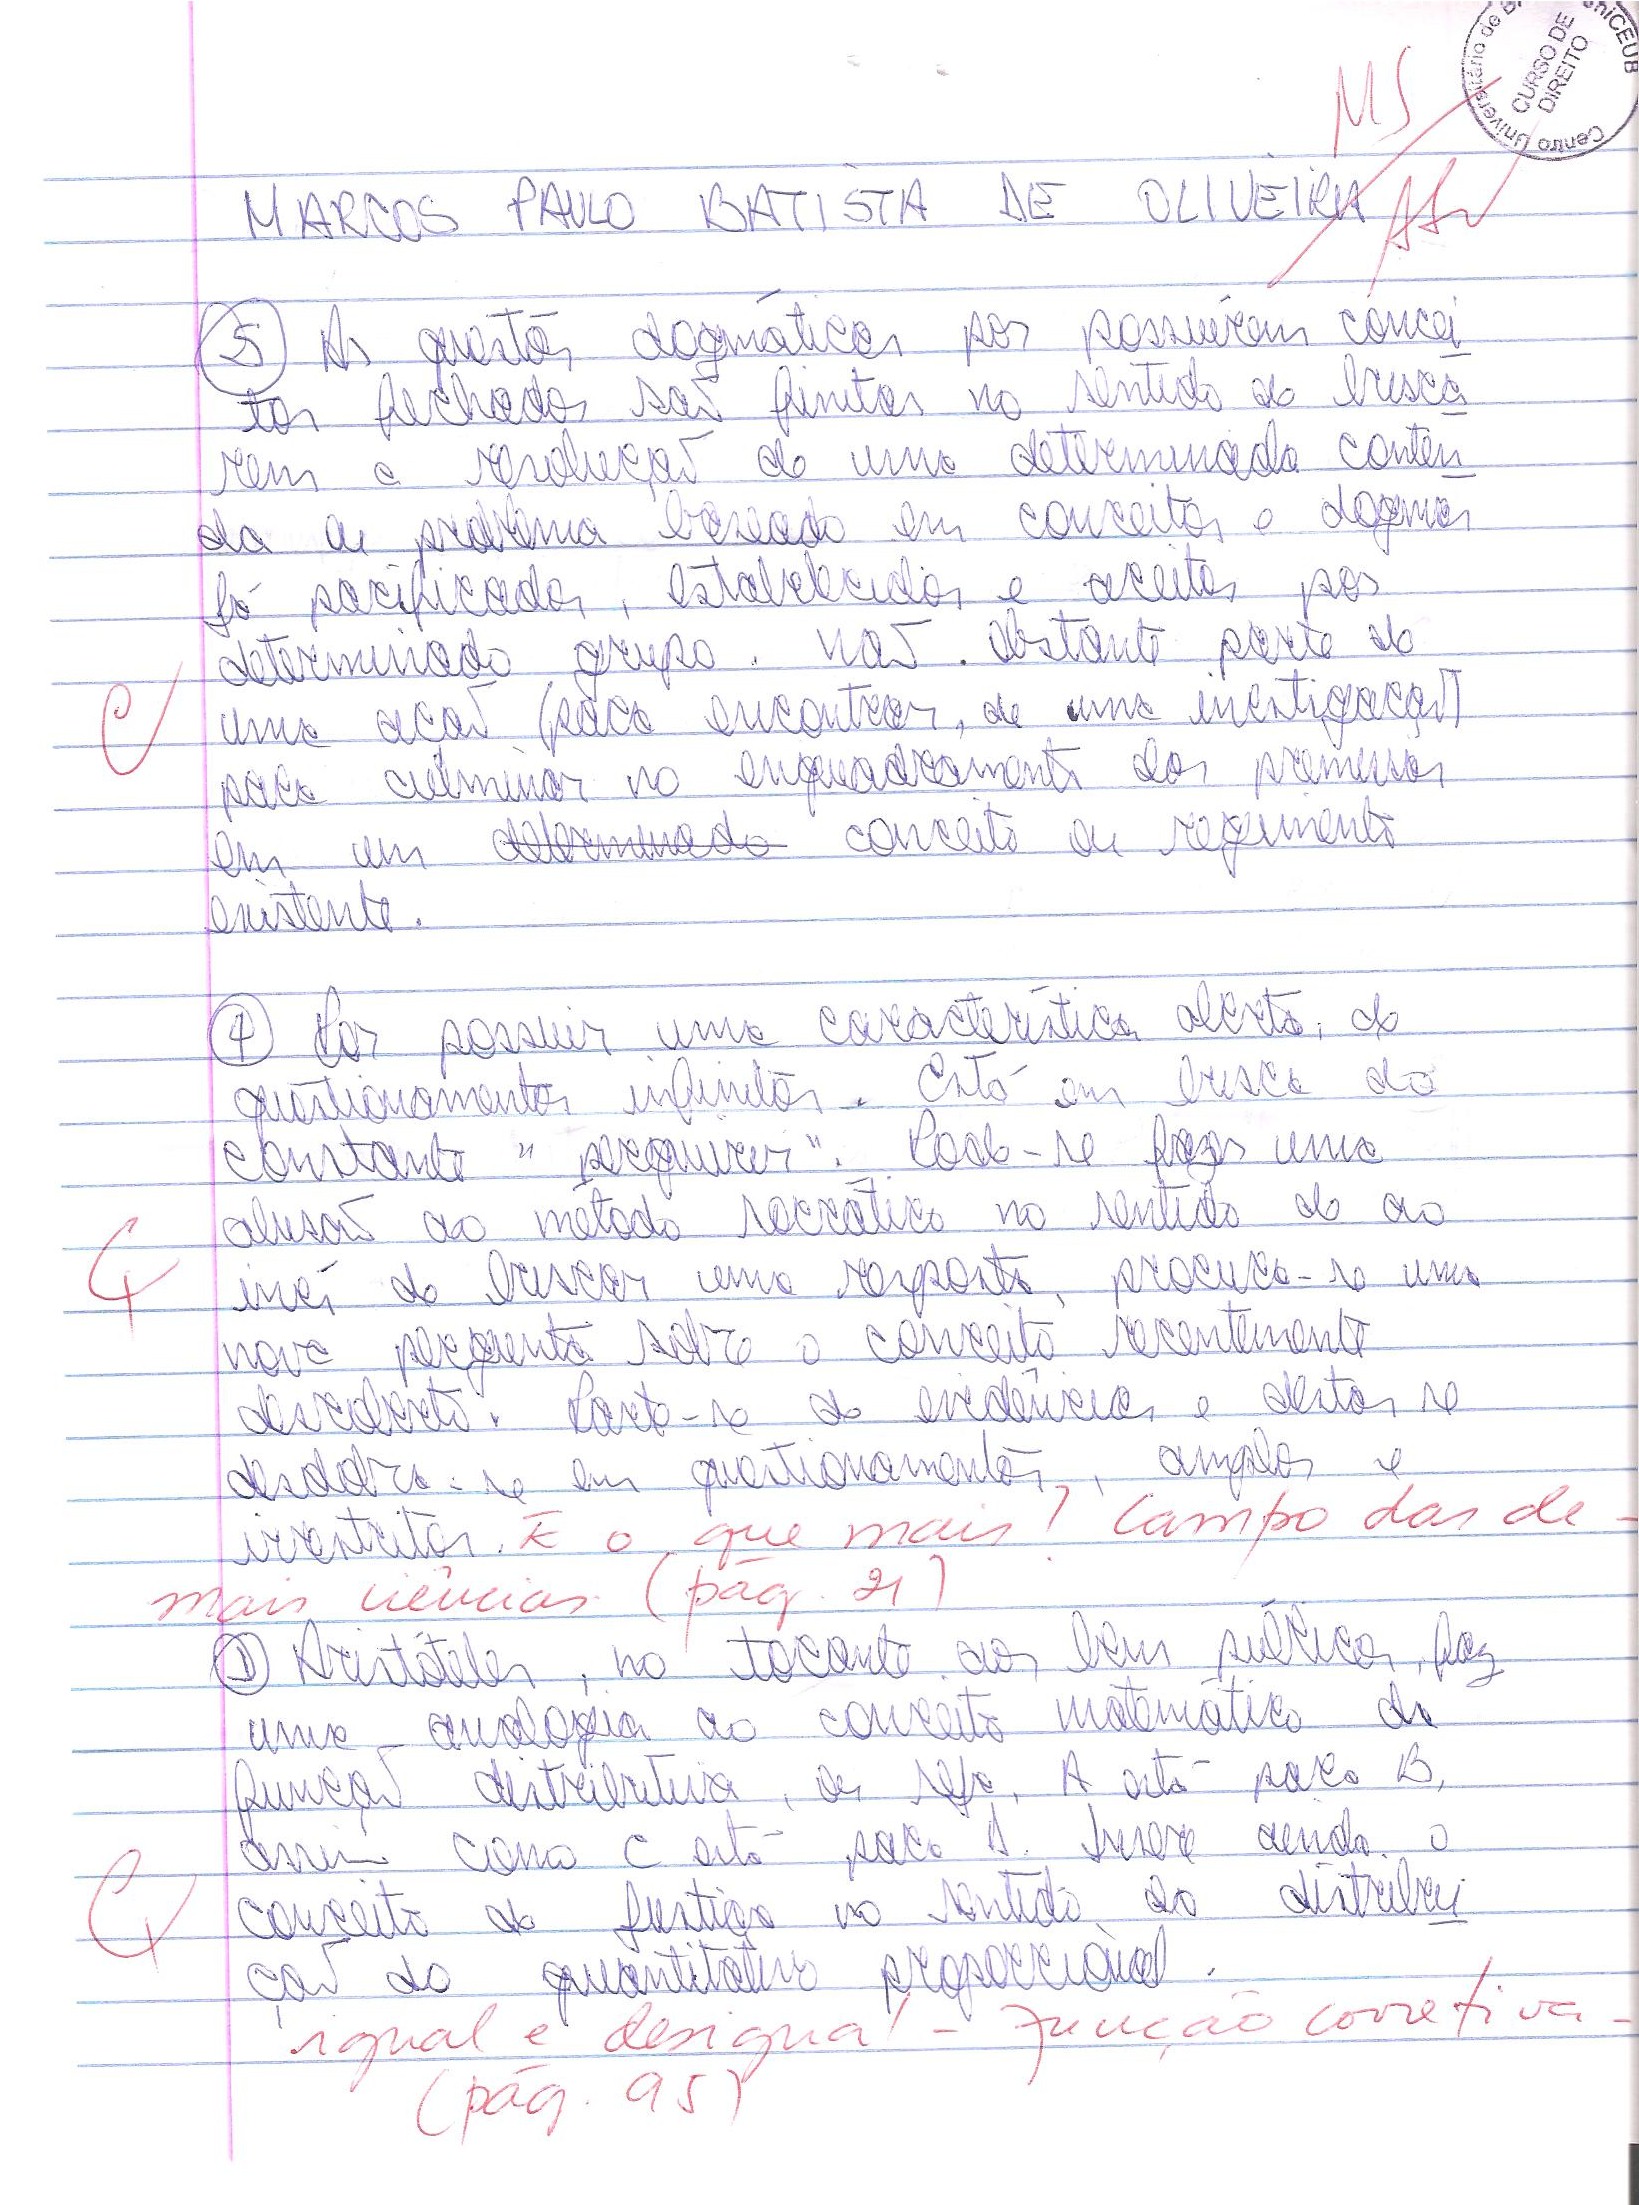 Centro Universitário de B UniCEUB
CURSO DE
DIREITO
MS
MARCOS PAULO BATISTA DE OLIVEIRA
5 As questões dogmáticas por possuírem concei
tos fechados são finitas no sentido de busca
rem a resolução de uma determinada conten
da ou problema baseado em conceitos e dogmas
já pacificados, estabelecidos e aceitos por
determinado grupo. Não obstante parte de
uma ação (para encontrar, de uma investigação)
para culminar no enquadramento das premissas
em um determinado conceito ou regimento
existente.
4 Por possuir uma característica aberta, de
questionamentos infinitos. Está em busca do
constante "perquirir". Pode-se fazer uma
alusão ao método socrático no sentido de ao
invés de buscar uma resposta, procura-se uma
nova pergunta sobre o conceito recentemente
descoberto. Parte-se de evidências e destas se
desdobra-se em questionamentos, amplos e
irrestritos. E o que mais? Campo das de-
mais ciências. (pág. 21)
1 Aristóteles, no tocante aos bens públicos, faz
uma analogia ao conceito matemático da
função distributiva, ou seja, A está para B,
assim como C está para D. Insere ainda o
conceito de justiça no sentido da distribui
ção do quantitativo proporcional.
igual e desigual - Função corretiva -
(pág. 95)